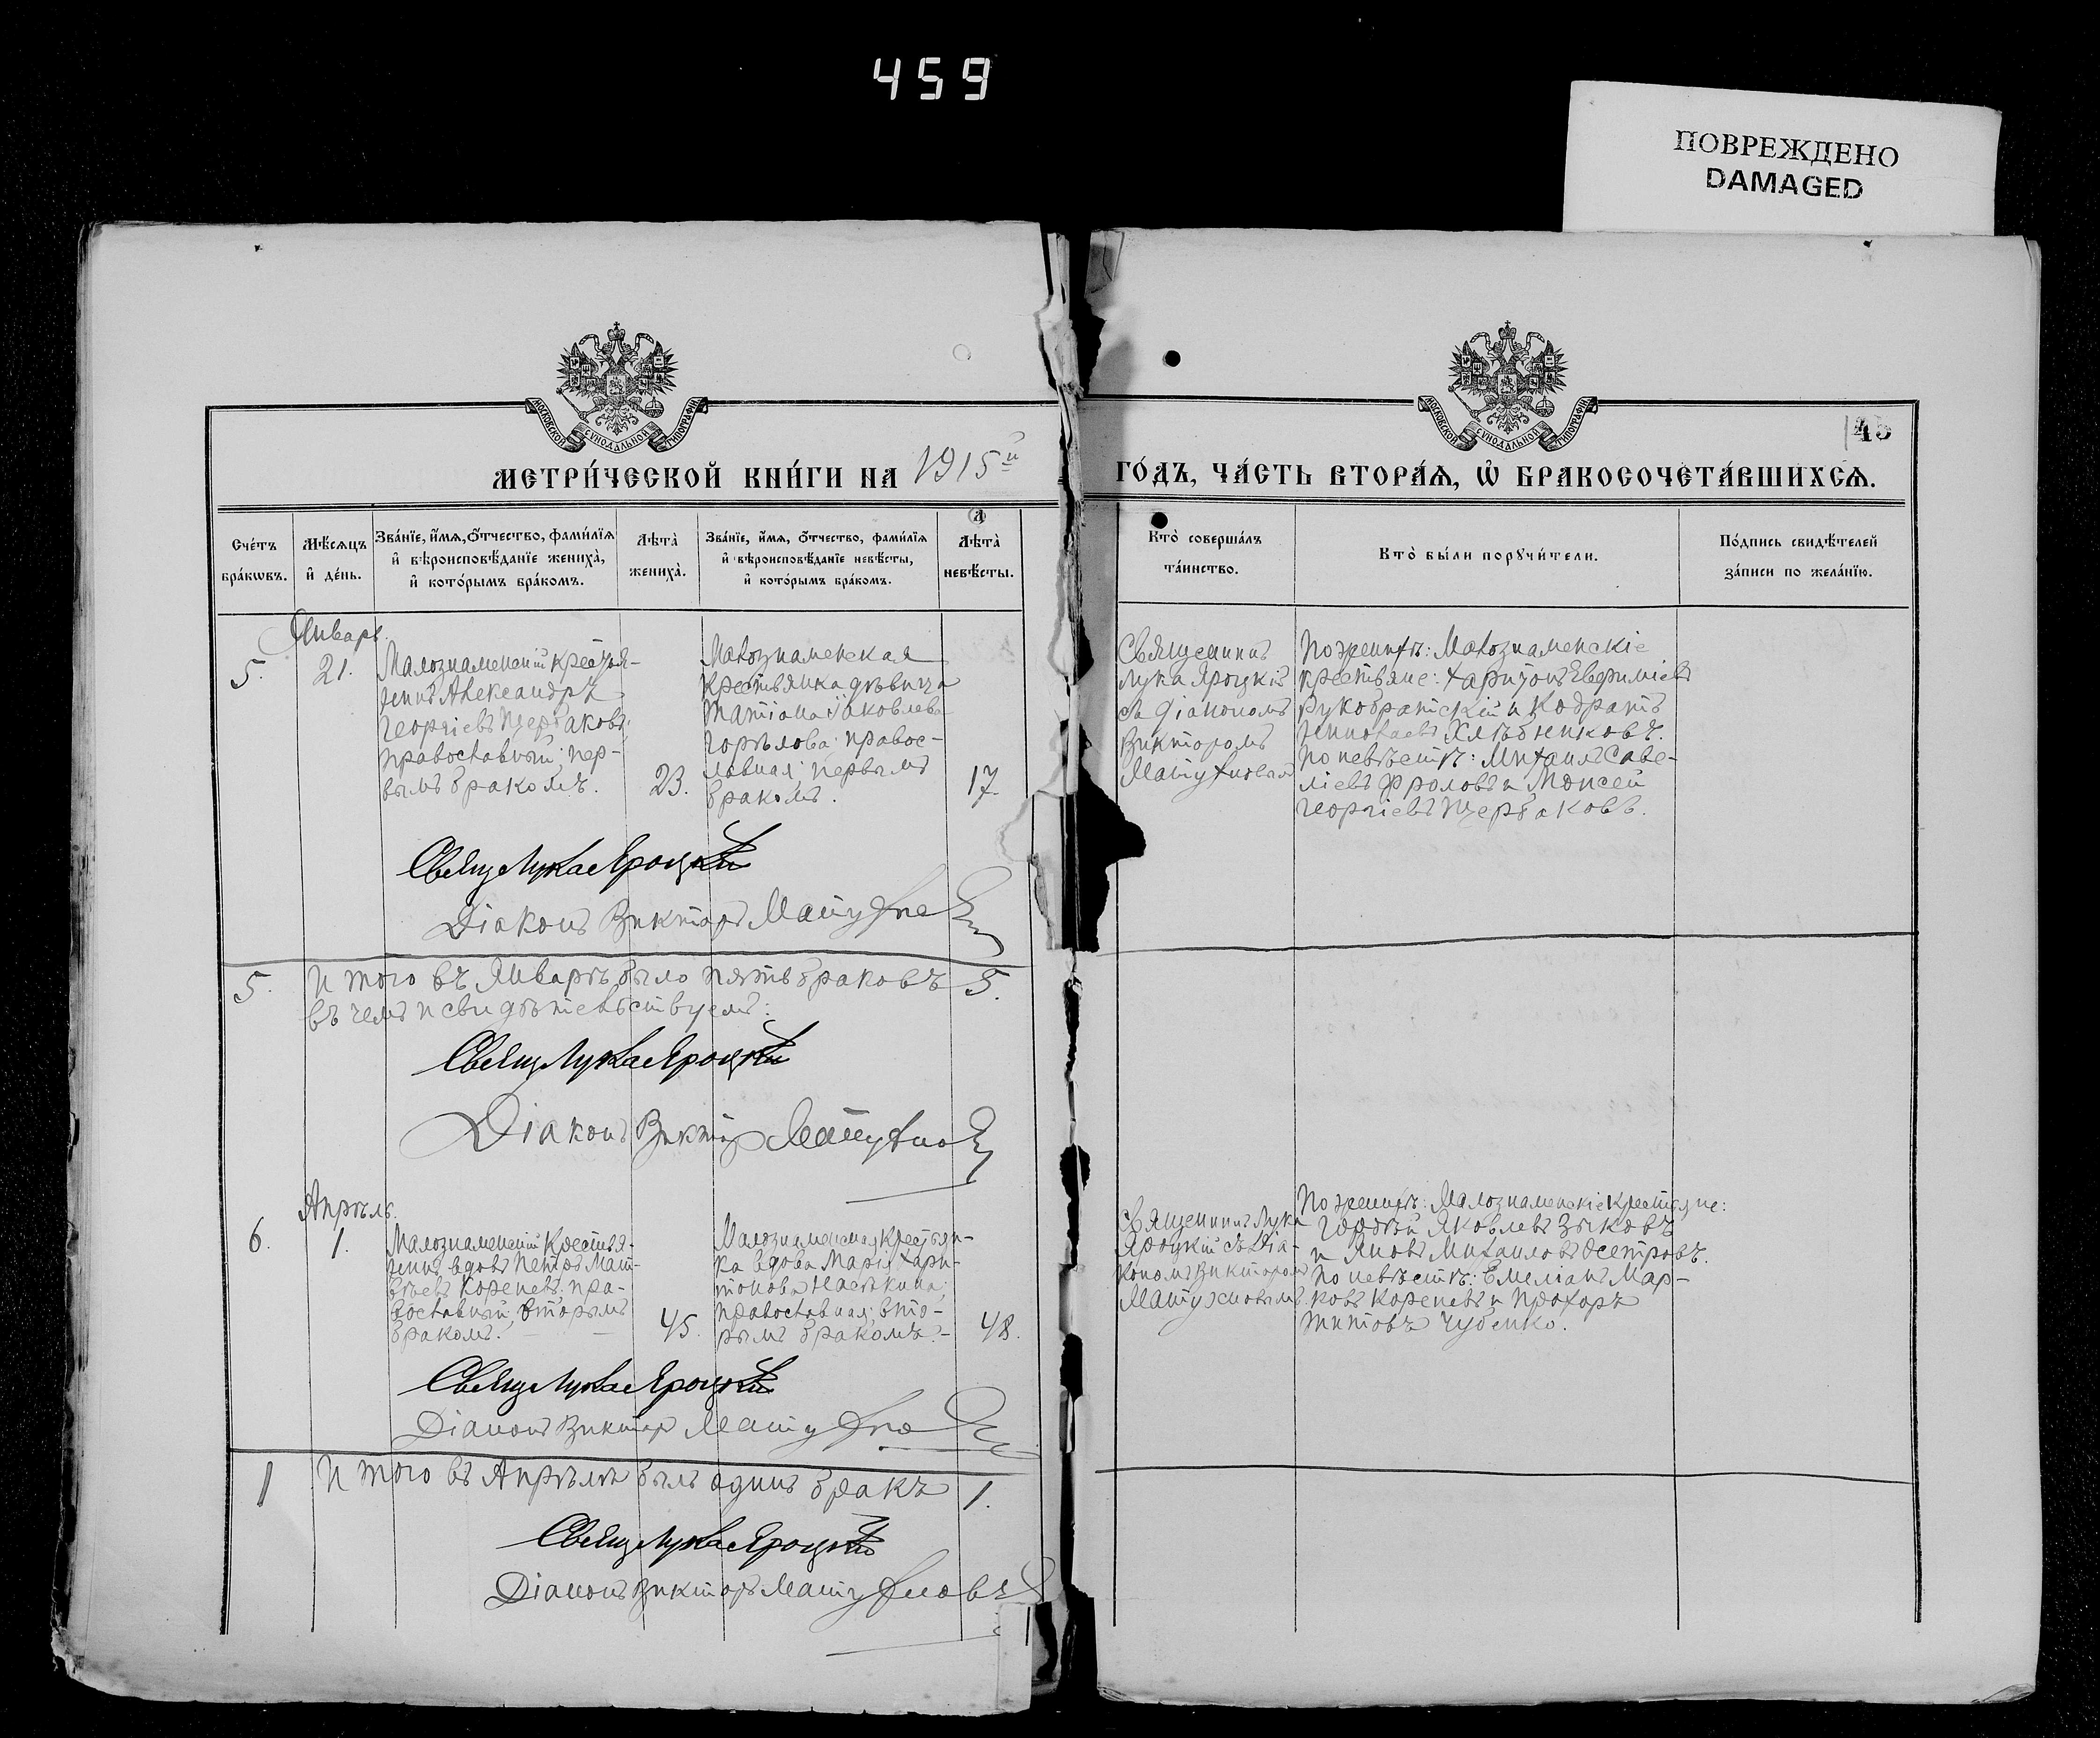 459
ПОВРЕЖДЕНО
DAMAGED
МОСКОВСКОЙ СѴНОДАЛЬНОЙ ТИПОГРАФІИ
МОСКОВСКОЙ СѴНОДАЛЬНОЙ ТИПОГРАФІИ
45
МЕТРИ́ЧЕСКОЙ КНИ́ГИ НА 1915й
ГО́ДЪ, ЧА́СТЬ ВТОРА́Ѧ, Ѽ БРАКОСОЧЕТА́ВШИХСѦ.
Сче́тъ бра́кѡвъ.
Мѣ́сяцъ и҆ де́нь.
Зва́нїе, и҆́мя, ѻ҆́тчество, фами́лїя
и҆ вѣроисповѣ́данїе жениха̀,
и҆ кото́рымъ бра́комъ.
Лѣта̀ жениха̀.
Зва́нїе, и҆́мя, ѻ҆́тчество, фами́лїя
и҆ вѣроисповѣ́данїе невѣ́сты,
и҆ кото́рымъ бра́комъ.
Лѣта̀ невѣ́сты.
Кто̀ соверша́лъ
та́инство.
Кто̀ бы́ли порꙋчи́тели.
По́дпись свидѣ́телей
за́писи по жела́нїю.
Январь
5. 21.
Малознаменскій крестья-
нинъ Александръ
Георгіевъ Щербаковъ,
православный; пер-
вымъ бракомъ.
23.
Малознаменская
крестьянка дѣвица
Татіана Іаковлева
Горѣлова православ-
лавная; первымъ
бракомъ.
17.
Священникъ
Лука Яроцкій
съ діакономъ
Викторомъ
Матухновымъ
По женихѣ: Малознаменскіе
крестьяне: Харитонъ Евфиміевъ
Рукобратскій и Кодратъ
Хлѣбниковъ.
По невѣстѣ: Михаилъ Саве-
ліевъ Фроловъ и Моисей
Георгіевъ Щербаковъ.
Свящ Лука Яроцкій
Діаконъ Викторъ Матухновъ
5. Итого въ Январѣ было пять браковъ 5.
въ чемъ и свидѣтельствуемъ:
Свящ Лука Яроцкій
Діаконъ Викторъ Матухновъ
Апрѣль.
6. 1.
Малознаменскій крестья-
нинъ вдовъ Петръ Мат-
вѣевъ Кореневъ, пра-
вославный; вторымъ
бракомъ.
45.
Малознаменская крестьян-
ка вдова Марія Хари-
тонова Насѣкина;
православная; вто-
рымъ бракомъ.
48.
Священникъ Лука
Яроцкій съ Діа-
кономъ Викторомъ
Матухновымъ
По женихѣ: Малознаменскіе крестьяне:
Гордѣй Яковлевъ Зыковъ
и Яковъ Михаиловъ Осетровъ.
По невѣстѣ: Емеліанъ Мар-
ковъ Кореневъ и Прохоръ
Титовъ Чубенко.
Свящ Лука Яроцкій
Діаконъ Викторъ Матухновъ
1 Итого въ Апрѣлѣ былъ одинъ бракъ 1.
Свящ Лука Яроцкій
Діаконъ Викторъ Матухновъ